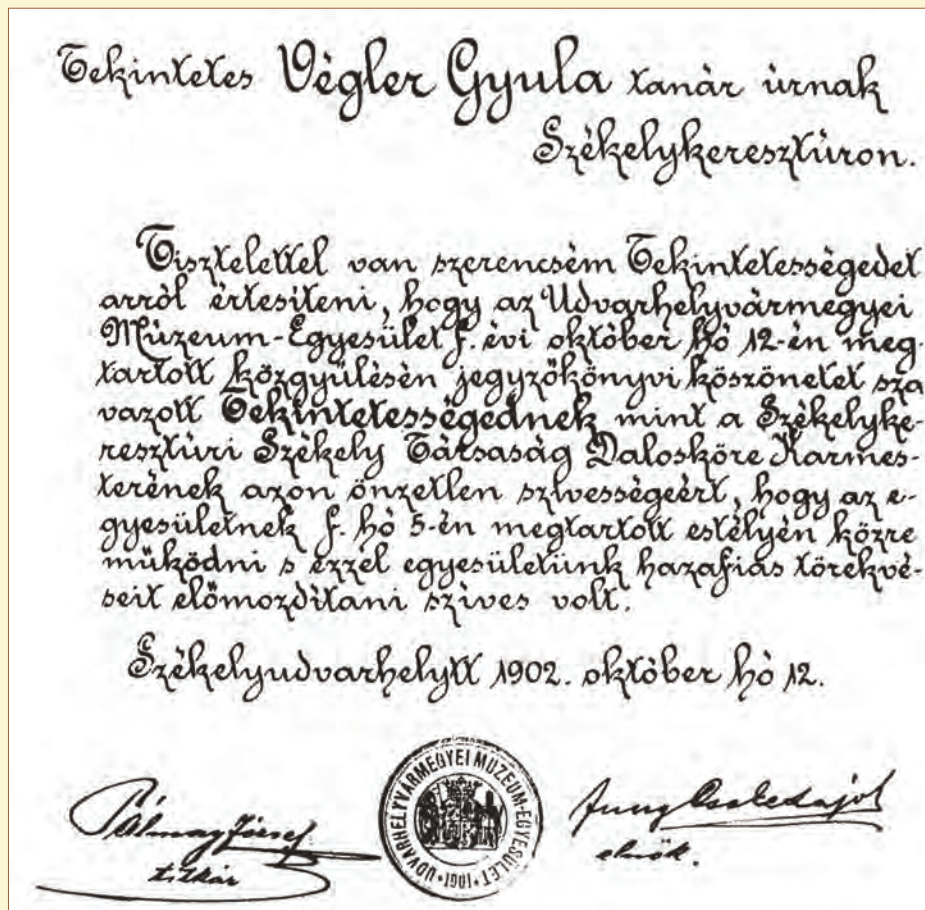 Tekintetes Végler Gyula tanár úrnak
Székelykeresztúron.
Tisztelettel van szerencsém Tekintetességedet
arról értesíteni, hogy az Udvarhelyvármegyei
Múzeum-Egyesület f. évi október hó 12-én meg-
tartott közgyűlésén jegyzőkönyvi köszönetet sza
vazott Tekintetességednek mint a Székelyke-
resztúri Székely Társaság Dalosköre Karmes-
terének azon önzetlen szívességéért, hogy az e-
gyesületnek f. hó 5-én megtartott estélyén közre
működni s ezzel egyesületünk hazafias törekvé-
seit előmozdítani szíves volt.
Székelyudvarhelytt 1902. október hó 12.
Pálmay József
titkár
UDVARHELYVÁRMEGYEI MÚZEUM-EGYESÜLET • 1901 •
elnök.